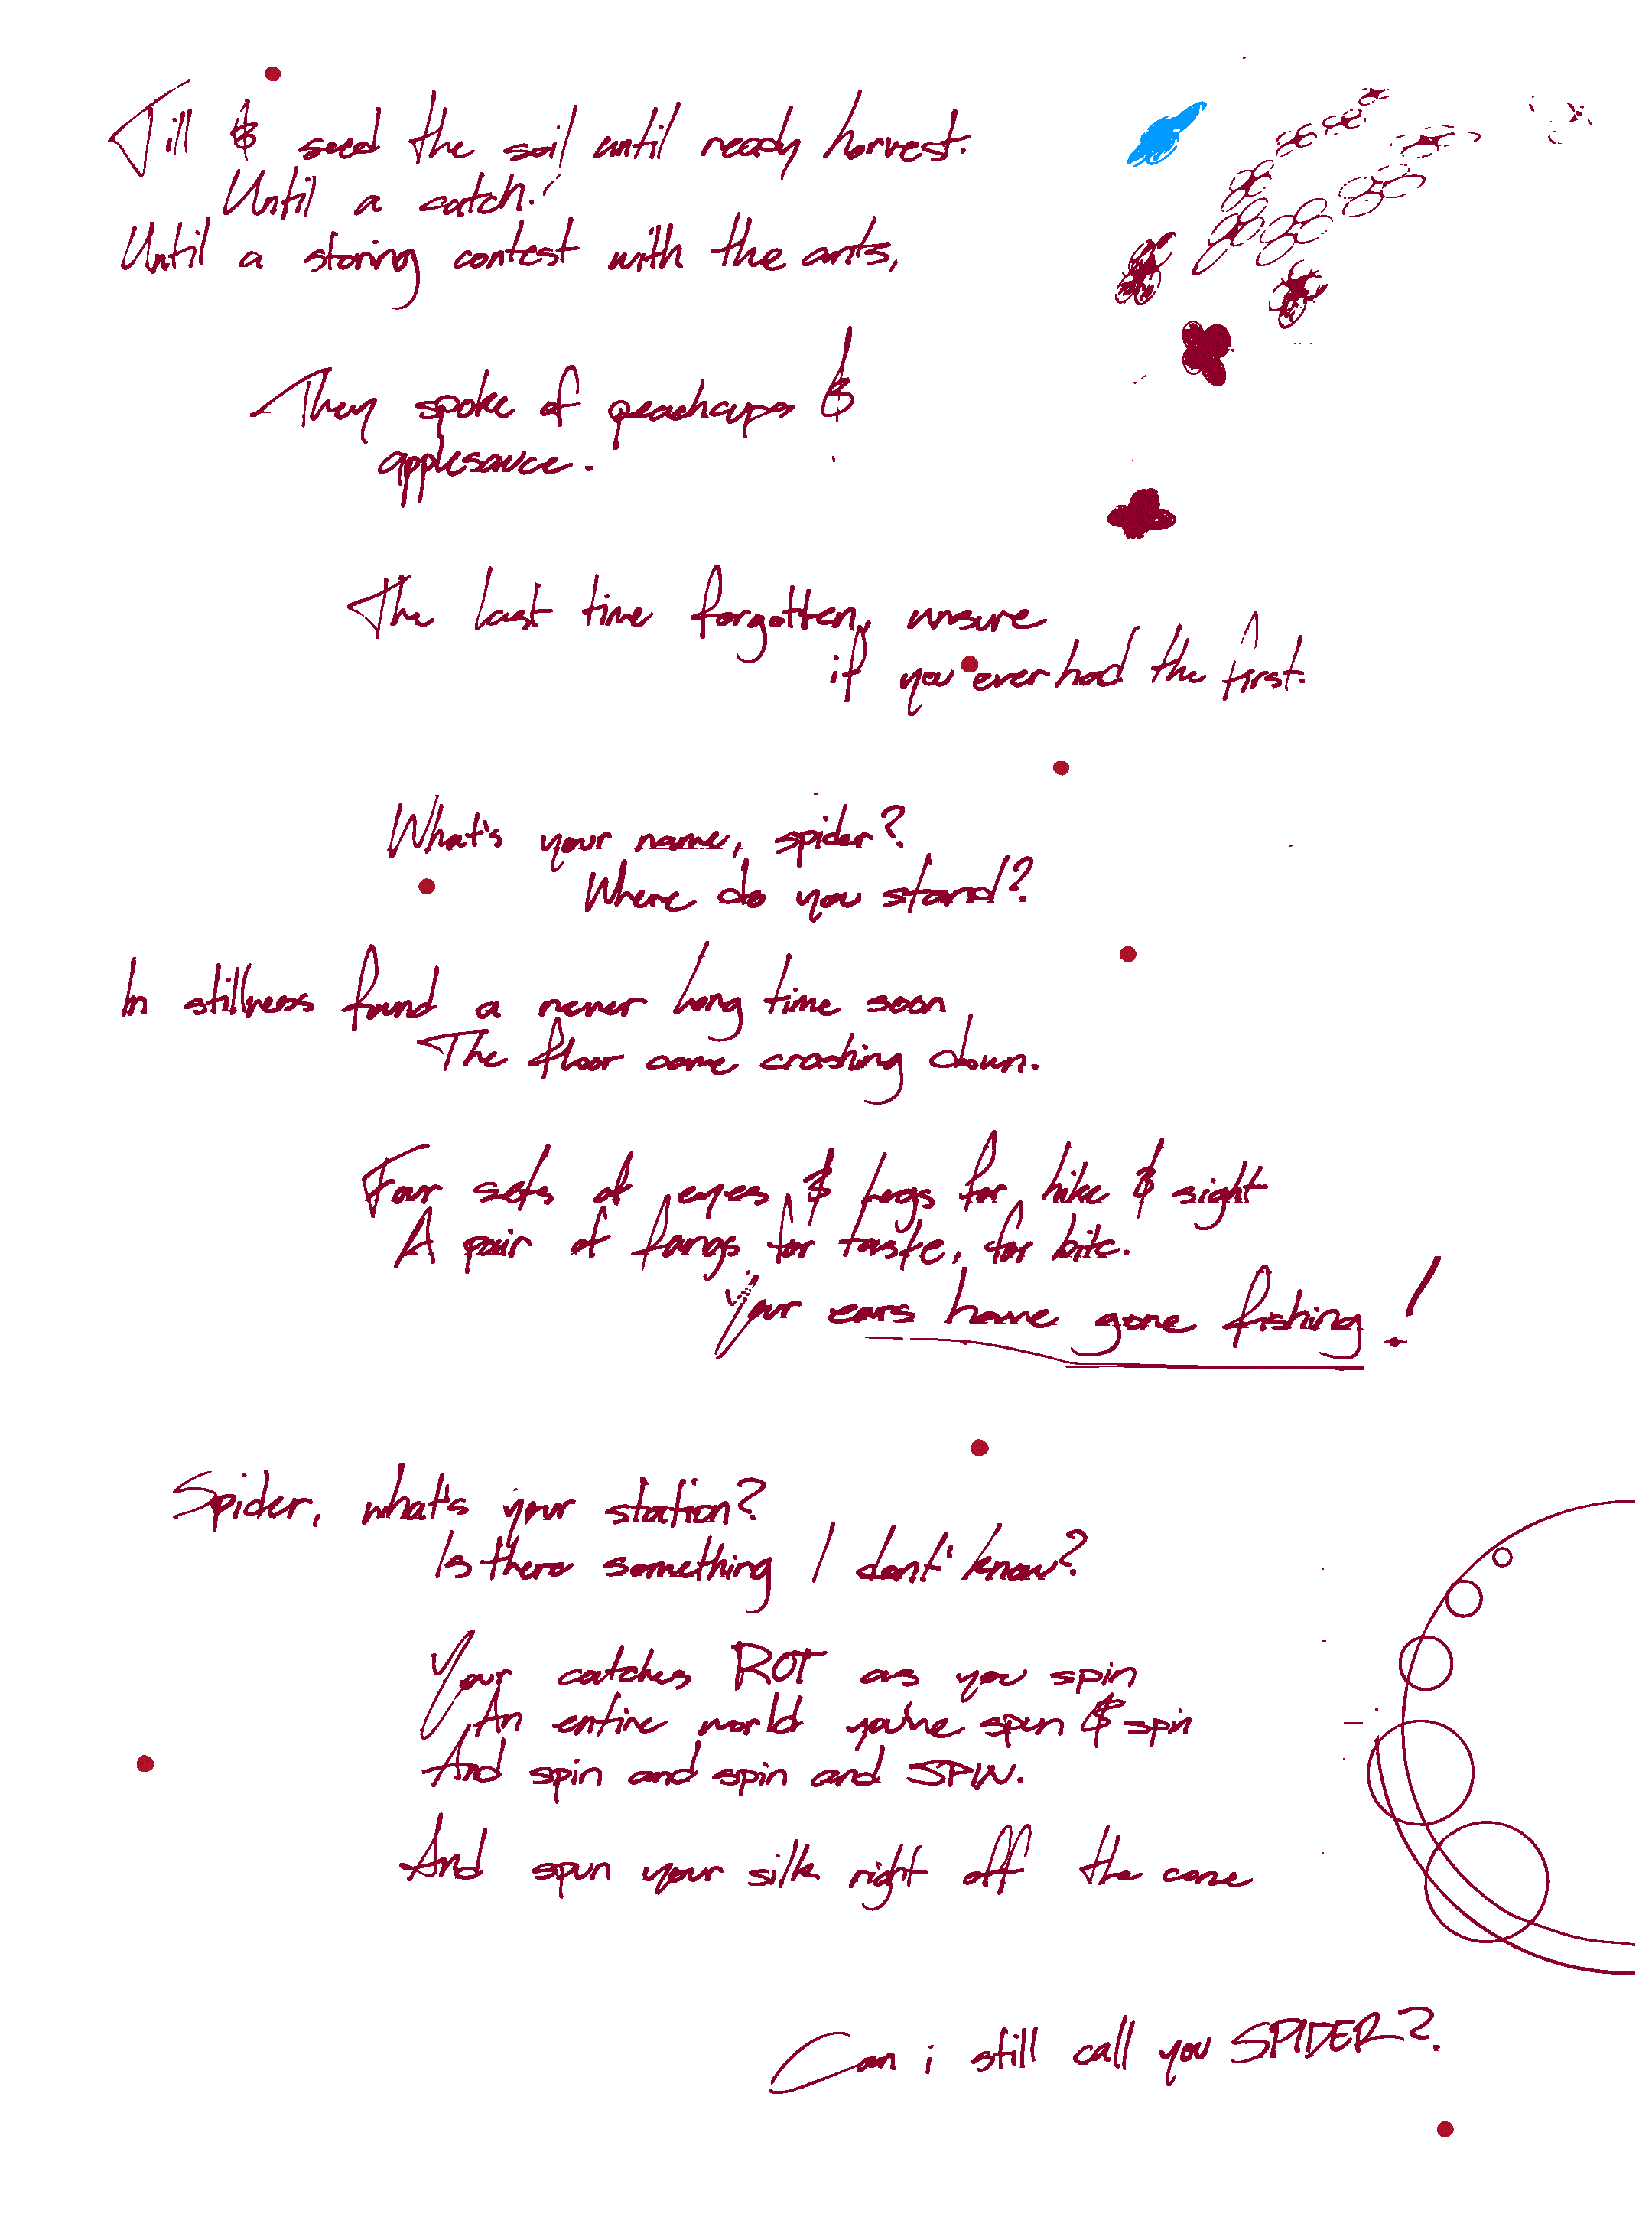 Till & seed the soil until ready harvest.
Until a catch!
Until a staring contest with the ants,
They spoke of peachcups &
applesauce.
The last time forgotten, unsure
if you ever had the first.
What's your name, spider?
Where do you stand?
In stillness found a never long time soon
The floor came crashing down.
Four sets of eyes & legs for hike & sight
A pair of fangs for taste, for bite.
Your ears have gone fishing!
Spider, what's your station?
Is there something I dont' know?
Your catches ROT as you spin
An entire world you've spun & spin
And spin and spin and SPIN.
And spun your silk right off the cone
Can i still call you SPIDER?